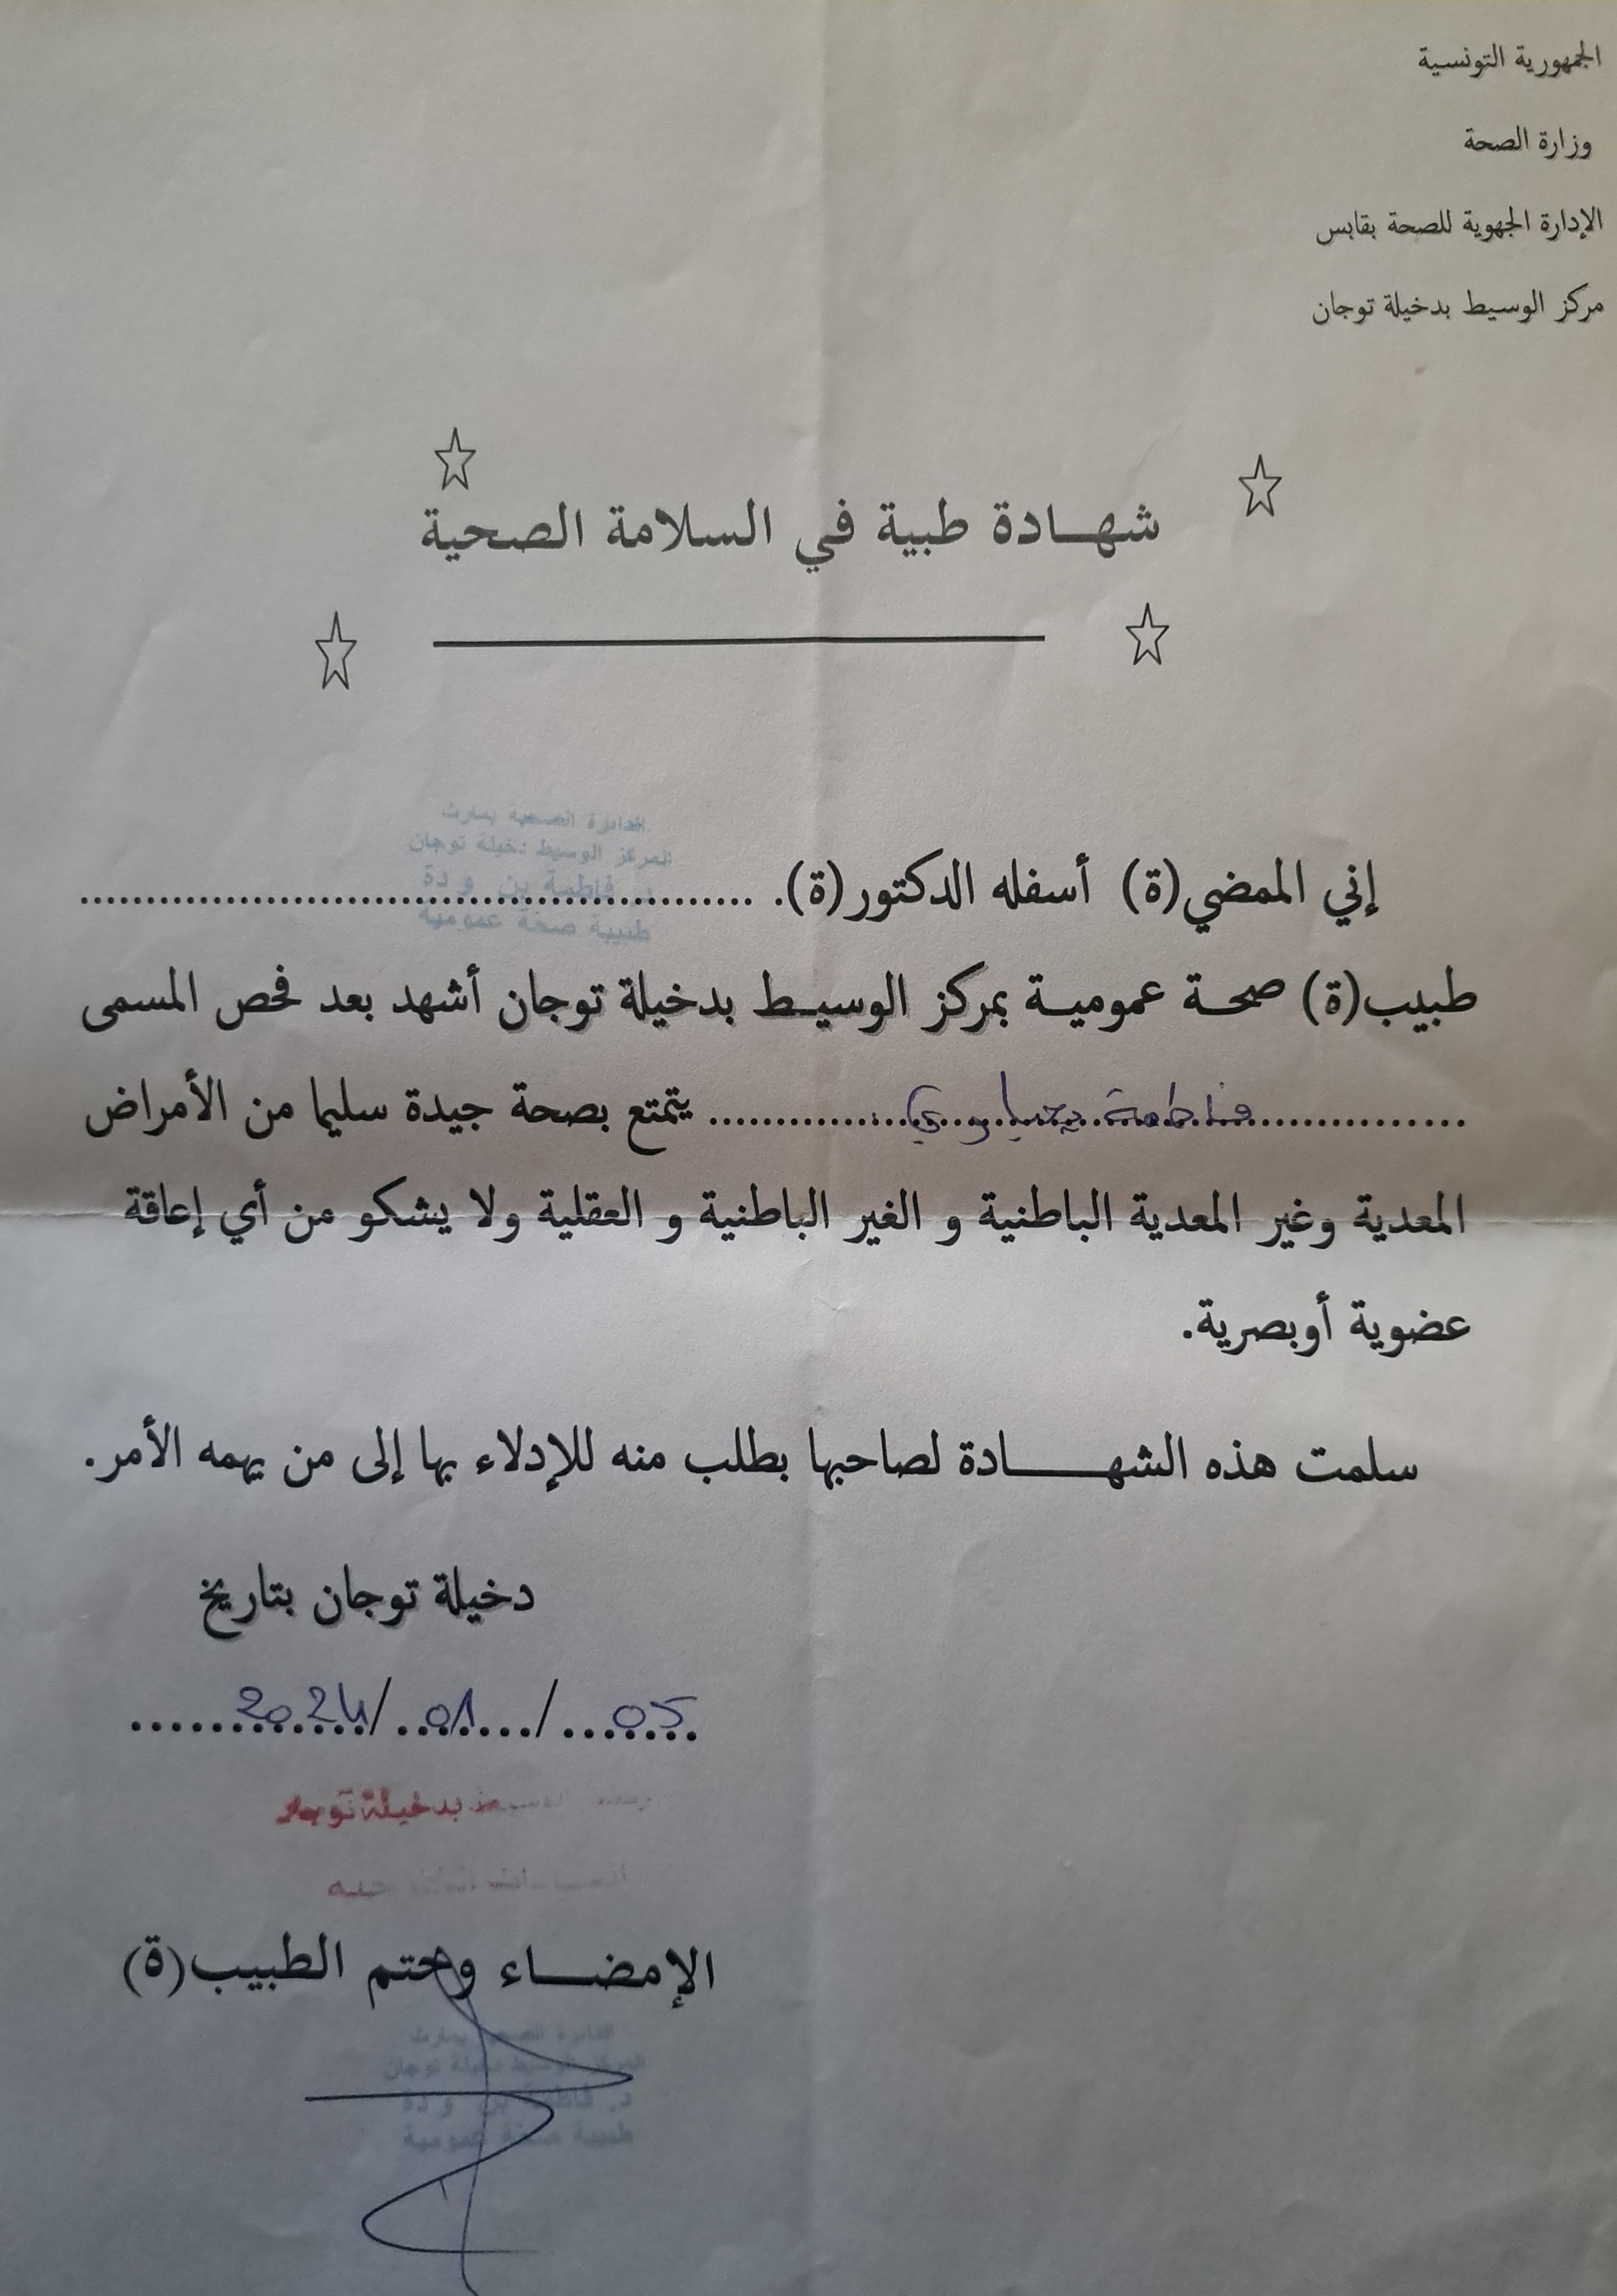 الجمهورية التونسية
وزارة الصحة
الإدارة الجهوية للصحة بقابس
مركز الوسيط بدخيلة توجان
شهـــادة طبية في السلامة الصحية
الدائرة الصحية بمارث
المركز الوسيط دخيلة توجان
د. فاطمة بن
طبيبة صحة عمومية
إني الممضي(ة) أسفله الدكتور(ة). ..................................................
طبيب(ة) صحــة عموميــة بمركز الوسيــط بدخيلة توجان أشهد بعد فحص المسمى
..................فاطمة يحياوي.................. يتمتع بصحة جيدة سليما من الأمراض
المعدية وغير المعدية الباطنية و الغير الباطنية و العقلية ولا يشكو من أي إعاقة
عضوية أوبصرية.
سلمت هذه الشهــــــادة لصاحبها بطلب منه للإدلاء بها إلى من يهمه الأمر.
دخيلة توجان بتاريخ
05/01/2024
الوسيط بدخيلة توجان
الإمضـــاء وختم الطبيب(ة)
الدائرة الصحية بمارث
المركز الوسيط دخيلة توجان
د. فاطمة بن
طبيبة صحة عمومية